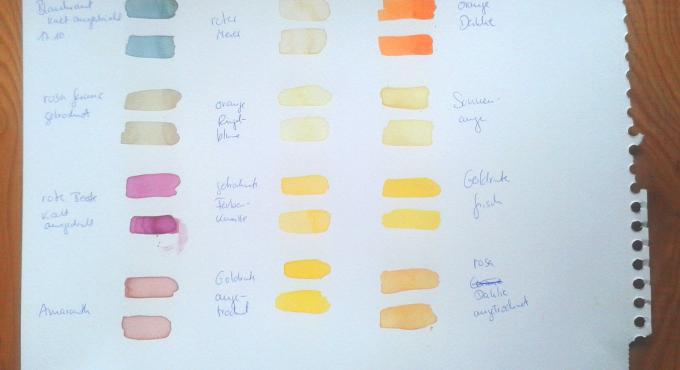 Blaukraut
kalt ausgedrückt
17.10
roter
orange
Dahlie
rosa
getrocknet
orange
Ringel-
blume
Sonnen-
auge
rote Beete
kalt
ausgedrückt
getrocknete
Färber-
Kamille
Goldrute
frisch
Amaranth
Goldrute
ange-
trocknet
rosa
Dahlie
angetrocknet